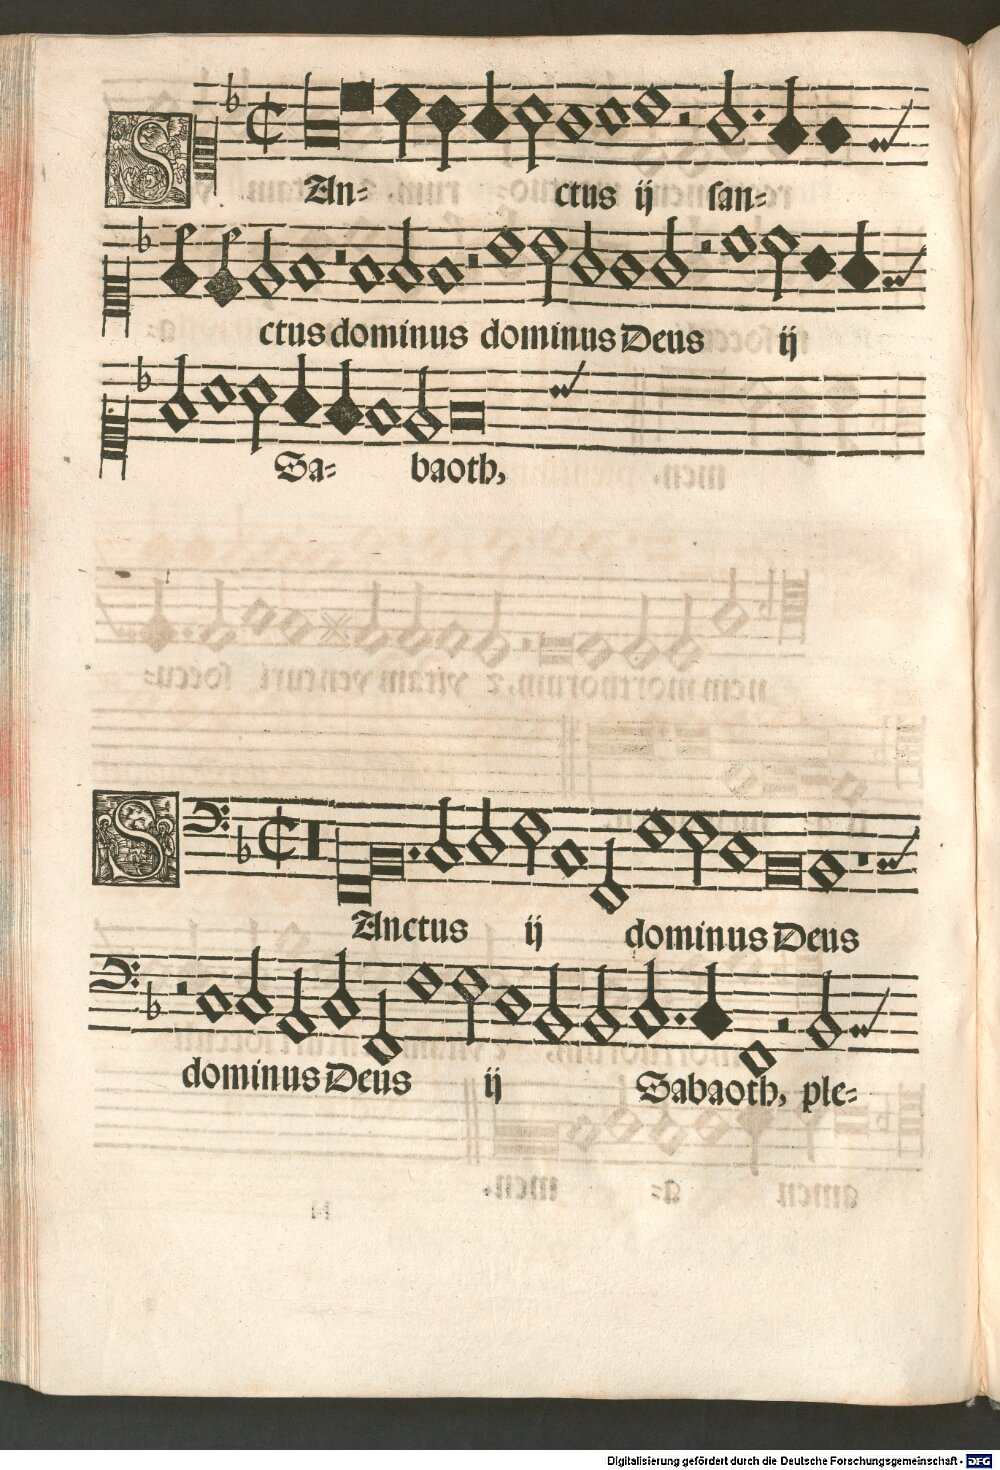 S An- ctus ij san-
ctus dominus dominus Deus ij
Sa- baoth,
S Anctus ij dominus Deus
dominus Deus ij Sabaoth, ple-
Digitalisierung gefördert durch die Deutsche Forschungsgemeinschaft - DFG